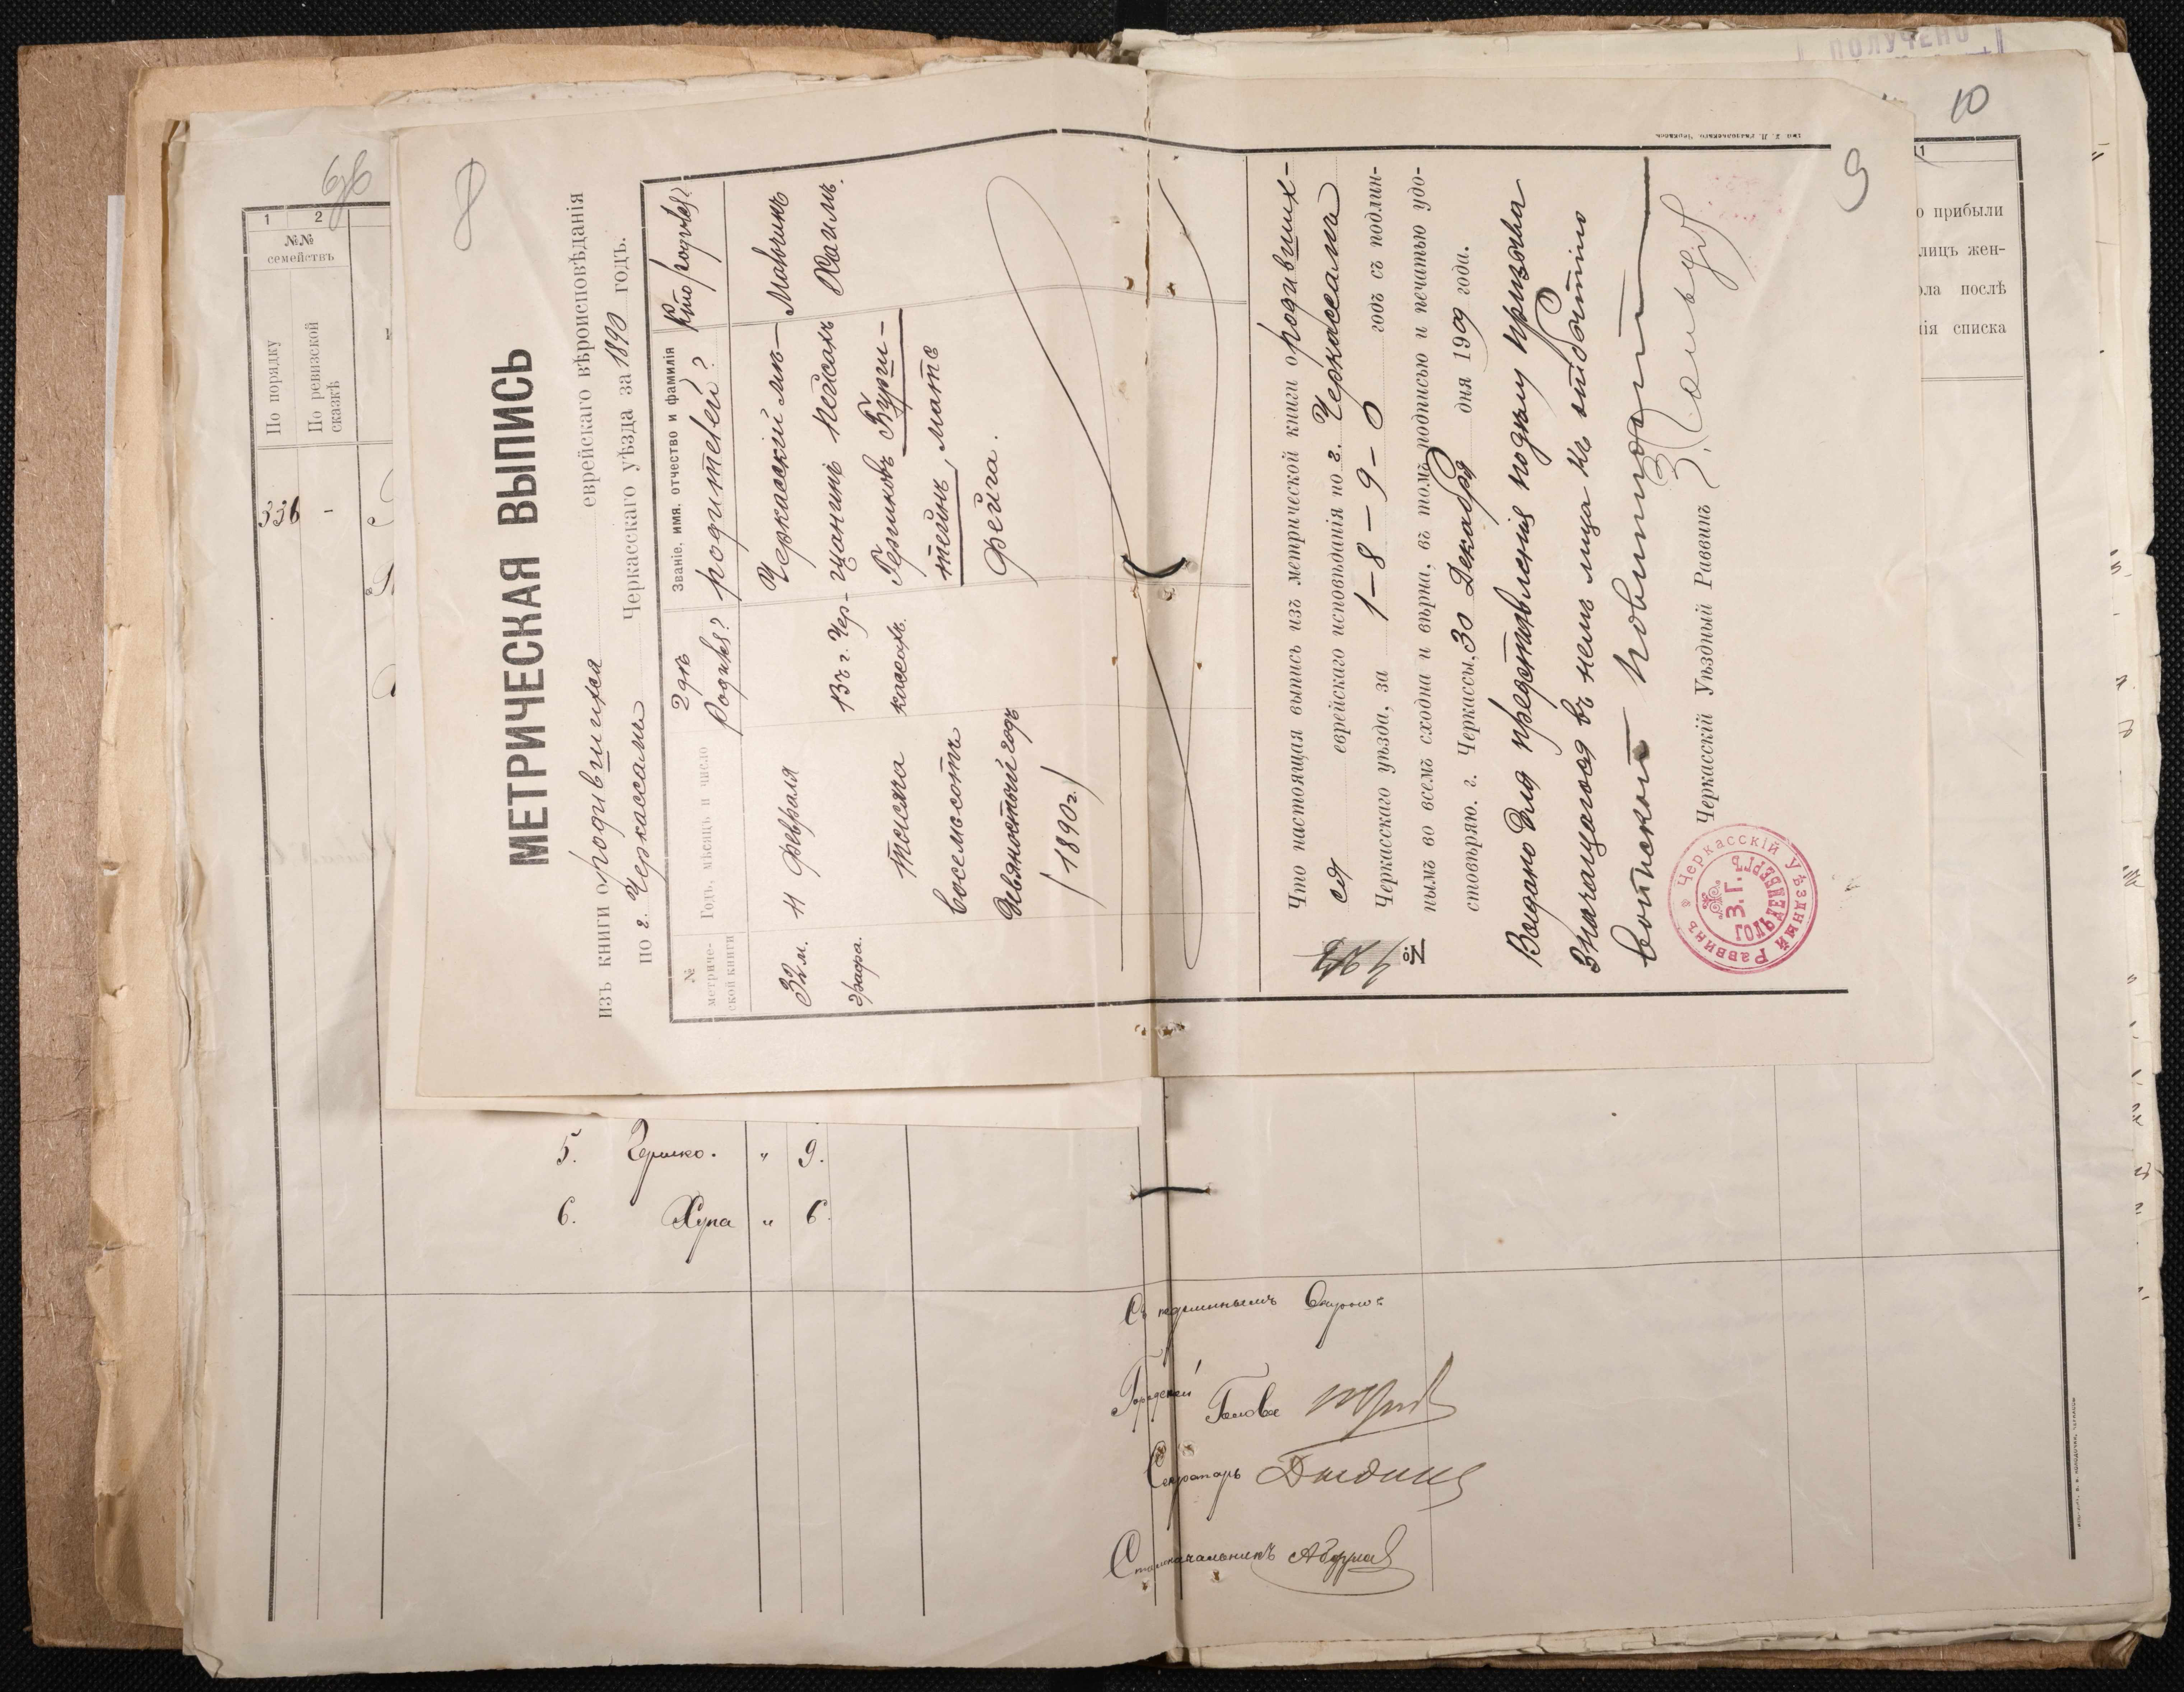 МЕТРИЧЕСКАЯ ВЫПИСЬ
изъ книги о родившихся еврейскаго вѣроисповѣданія
по г. Черкассамъ Черкасскаго уѣзда за 1890 годъ.
№ метриче-ской книги
Годъ, мѣсяцъ и число
Гдѣ родился?
Званіе, имя, отчество и фамилія родителей?
Кто родился?
32 м.
графа.
11 Февраля
тысяча
восемьсотъ
девяностый годъ
(1890 г.)
Въ г. Чер-
кассахъ.
Черкасскій мѣ-
щанинъ Пейсахъ
Гершковъ
мать
Фейга.
Мальчикъ
Хаимъ.
Что настоящая выпись изъ метрической книги о родивших-
ся еврейскаго исповѣданія по г. Черкассамъ
Черкасскаго уѣзда, за 1-8-9-0 годъ съ подлин-
нымъ во всемъ сходна и вѣрна, въ томъ подписью и печатью удо-
стовѣряю. г. Черкассы, 30 Декабря дня 1909 года.
№
Выдано для представленія подъему призыва
значащагося въ немъ лица къ отбытію
воинской повинности
Черкасскій Уѣздный Раввинъ
Черкасскій Уѣздный Раввинъ
З. Г.
8
9
10
ПОЛУЧЕНО
1
2
№№
семействъ
По порядку
По ревизской
сказкѣ
336
-
11
о прибыли
лицъ жен-
ола послѣ
нія списка
5. Гершко. " 9.
6. Хуна " 6.
Съ подлиннымъ вѣрно:
Городской Голова
Секретарь
Столоначальникъ